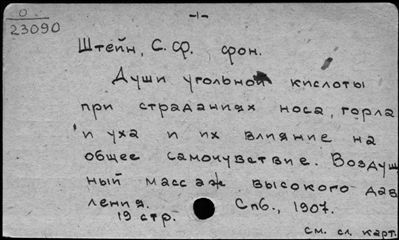 0.
23090
-1-
Штейн, С. Ф. фон.
Души угольной кислоты
при страданиях носа, горла
и уха и их влияние на
общее самочувствие. Воздуш
ный массаж высокого дав
ления. Спб., 1907.
19 стр.
см. сл. карт.